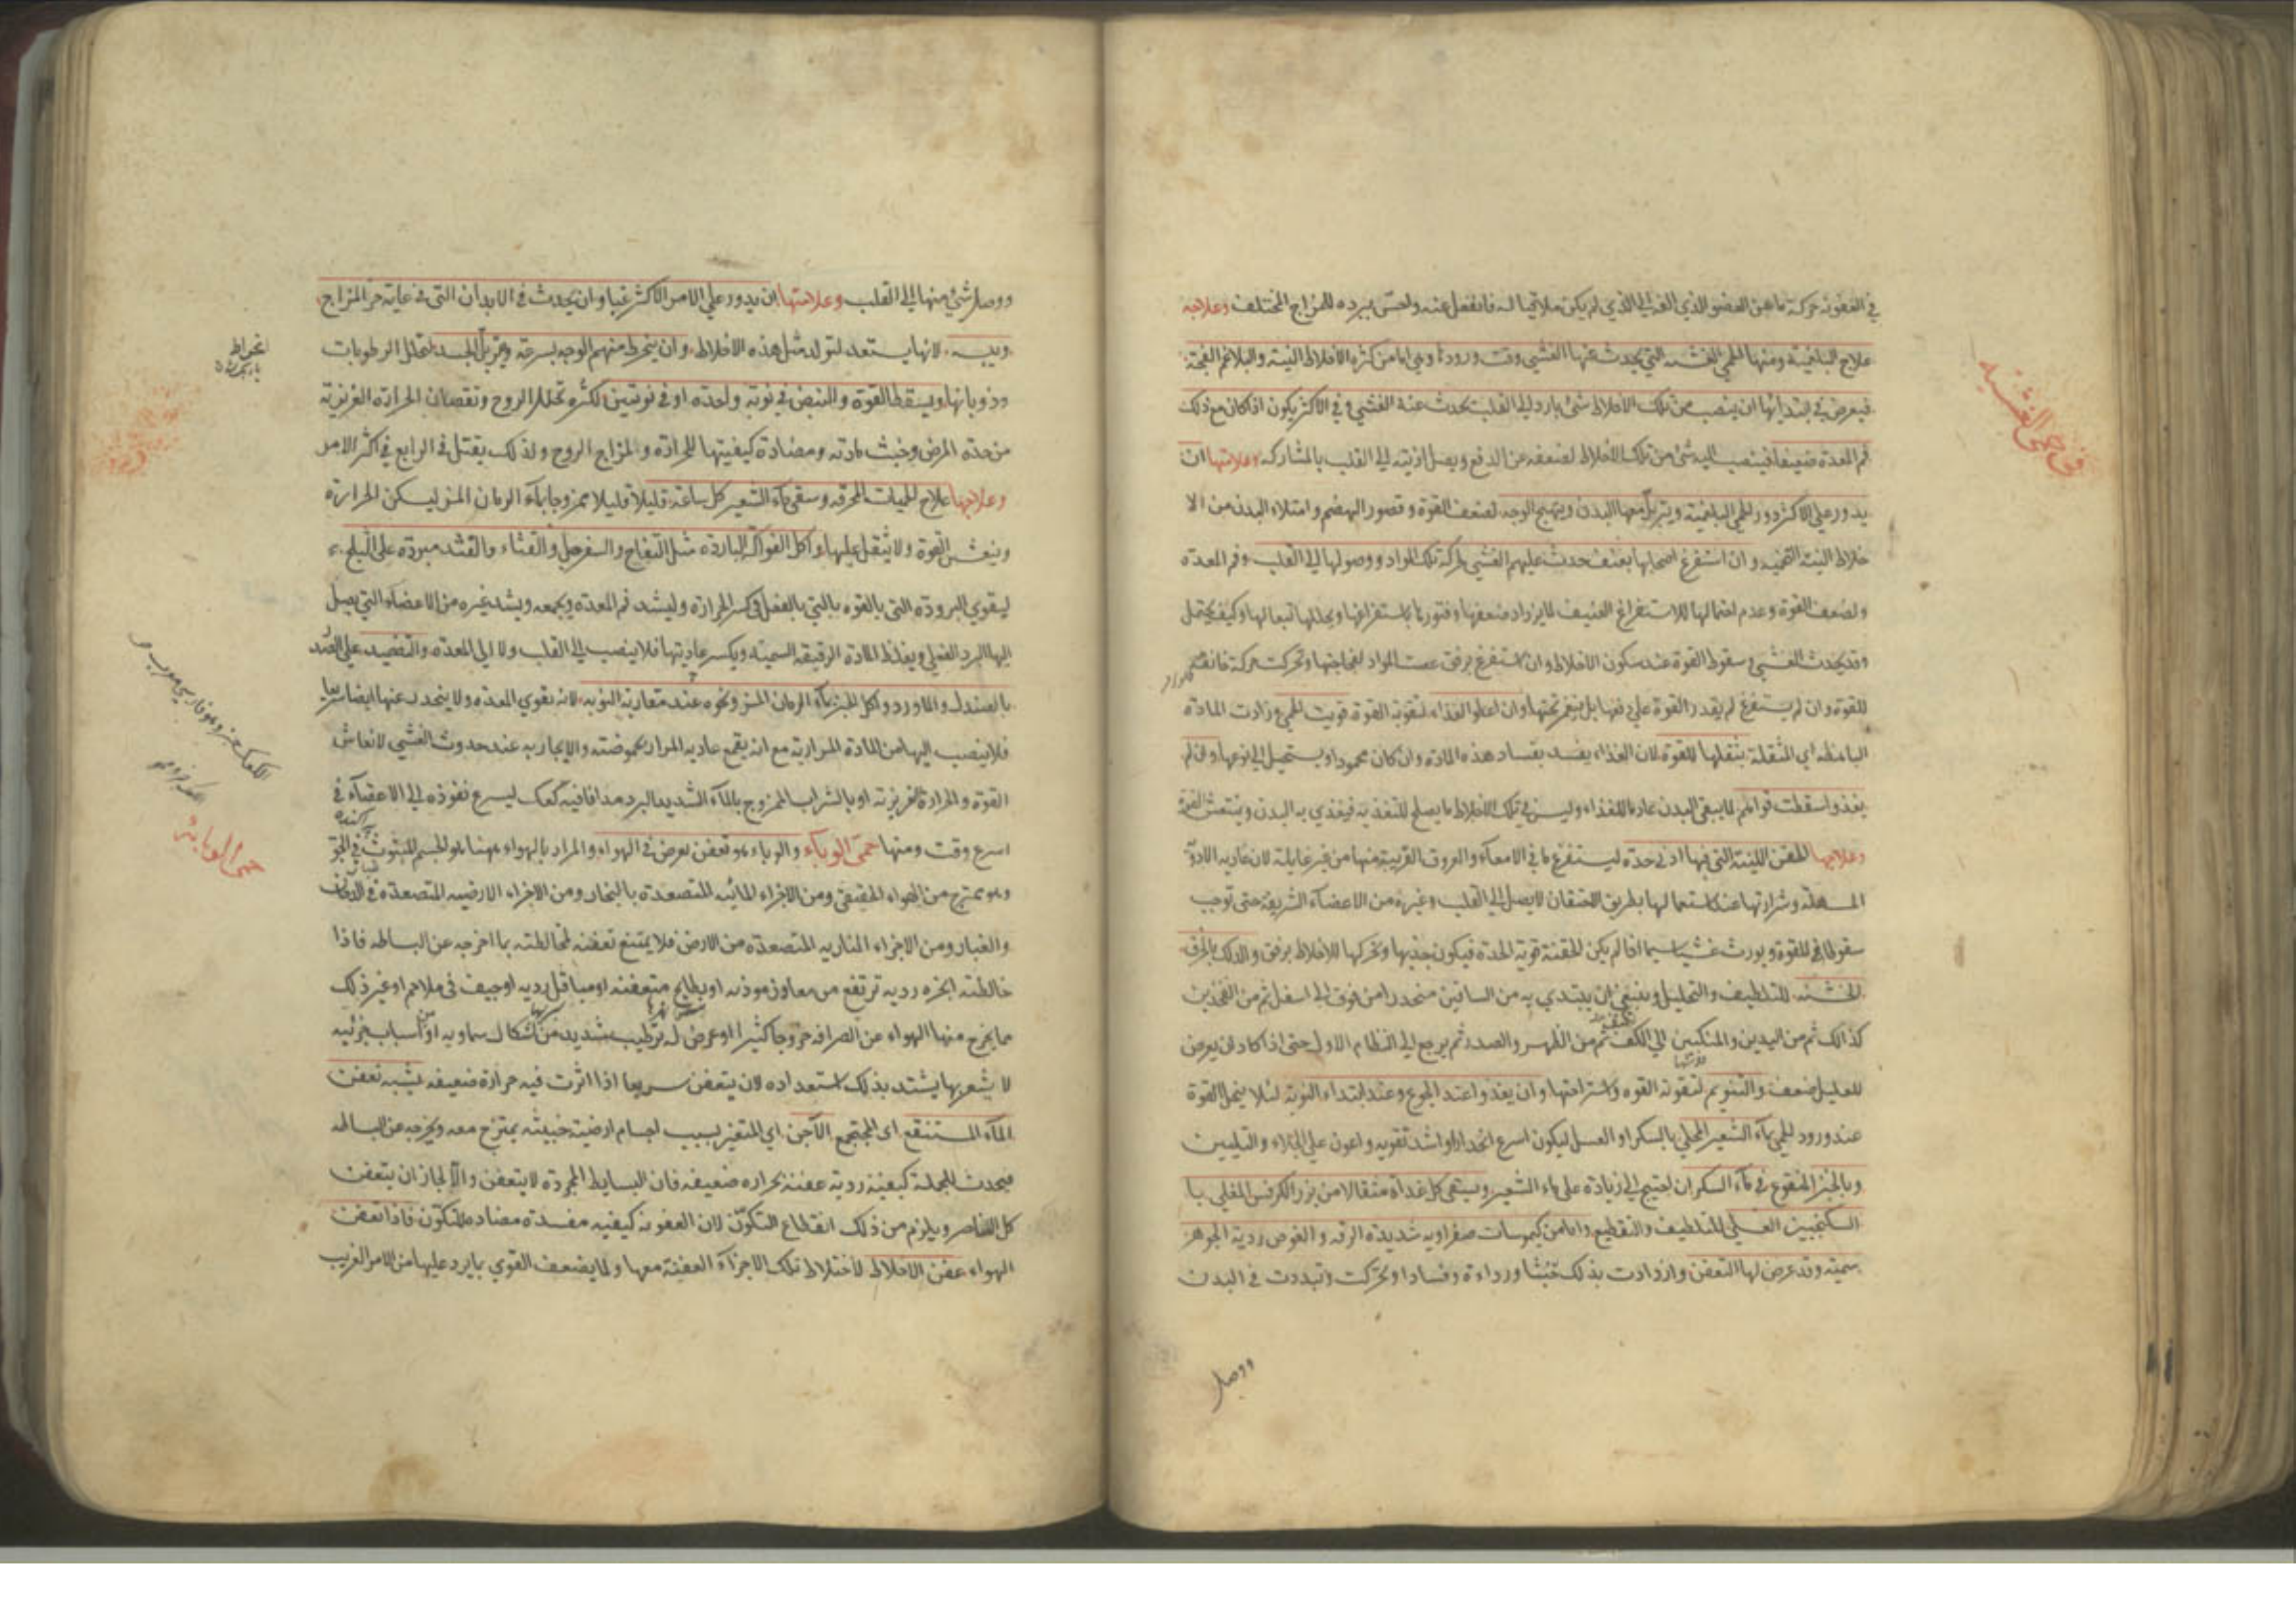 في العفونة حركة ما عن العضو الذي الفه الي الذي لم يكن ملاقيا له فانفعل عنه واحس ببرده للمزاج المختلف وعلاجه
علاج البلغمية ومنها الحمي الغشيه التي يحدث عنها الغشي وقت ورودها وهي اما من كثرة الأخلاط النيه والبلاغم الفجة
فيعرض في ابتدائها ان ينصب من تلك الاخلاط شئ بارد الي القلب يحدث عنه الغشي و في الاكثر يكون اذا كان مع ذلك
فم المعدة ضعيفا فينصب اليه شئ من تلك الاخلاط لضعفه عن الدفع ويصل اذيته الي القلب بالمشاركه وعلامتها ان
يدور علي الاكثر دور الحمي البلغمية ويتربل معها البدن ويتهيج الوجه لضعف القوة و قصور الهضم وامتلاء البدن من الا
خلاط النيه التخميه و ان استفرغ اصحابها بعنف حدث عليهم الغشي لحركة تلك المواد ووصولها الي القلب وفم المعدة
ولضعف القوة وعدم احتمالها للاستفراغ العنيف لما يزداد ضعفها وفتورها باستفراغها و تحللها تبعا لها وكيف يحتمل
وقد يحدث الغشي و سقوط القوة عند سكون الاخلاط وان استفرغ برفق عصت المواد لفجاجتها وتحركت حركة خانقة
للقوة وان لم يستفرغ لم يقدر القوة علي دفعها بل ينغمر تحتها وان اعطوا الغذاء لتقوية القوة قويت الحمي وزادت المادة
الباهظه اي المثقلة بثقلها للقوة لان الغذاء يفسد بفساد هذه المادة وان كان محمودا ويستحيل الي نوعها وان لم
يغذوا سقطت قواهم لما يبقي البدن عادما للغذاء وليس في تلك الاخلاط ما يصلح للتغذية فيغتذي به البدن وينتعش القوة
وعلاجها الحقن اللينة التي فيها ادني حدة ليستفرغ ما في الامعاء والعروق القريبة منها من غير غايلة لان عاديه الادوية
المسهلة وشرارتها عند استعمالها بطريق الاحتقان لا يصل الي القلب وغيره من الاعضاء الشريفة حتي توجب
سقوطا في القوة ويورث غشيا سيما اذا لم يكن الحقنة قوية الحدة فيكون جذبها وتحركها للاخلاط برفق والدلك بالخرق
الخشنه للتلطيف والتحليل وينبغي ان يبتدي به من الساقين منحدرا من فوق الي اسفل ثم من الفخذين
كذالك ثم من اليدين والمنكبين الي الكف ثم من الظهر والصدر ثم يرجع الي النظام الاول حتي اذا كاد ان يعرض
للعليل ضعف والتنويم لتقوية القوه واستراحتها وان يغذوا عند الجوع وعند ابتداء النوبة لئلا يخل القوة
عند ورود الحمي بماء الشعير المحلي بالسكر او العسل ليكون اسرع انحدارا واشد تقويه و اعون علي الجلاء والتليين
وبالخبز المنقوع في ماء السكر ان احتيج الي زيادة علي ماء الشعير ويسقي كل غداة مثقالا من بزر الكرفس المغلي با
السكنجبين العسلي للتلطيف والتقطيع واما من كيموسات صفراويه شديدة الرقه و الغوص ردية الجوهر
سمية وقد عرض لها التعفن وازدادت بذلك خبثا ورداءة وفسادا و تحركت وتبددت في البدن
ووصل
في حمي الغشيه
ووصل شئ منها الي القلب وعلامتها ان يدور علي الامر الاكثر غبا وان يحدث في الابدان التي في غاية حر المزاج
ويبسه لانها يستعد لتولد مثل هذه الاخلاط و ان ينخرط منهم الوجه بسرعة ويتربل الجسد لتحلل الرطوبات
وذوبانها ويسقط القوة والنبض في نوبة واحدة او في نوبتين لكثرة تحلل الروح ونقصان الحرارة الغريزية
من حدة المرض وخبث مادته ومضادة كيفيتها للحرارة و لمزاج الروح ولذلك يقتل في الرابع في اكثر الامر
وعلاجها علاج الحميات المحرقه وسقي ماء الشعير كل ساعة قليلا قليلا ممزوجا بماء الرمان المز ليسكن الحرارة
وينعش القوة ولا يثقل عليها و اكل الفواكه الباردة مثل التفاح والسفرجل والقثاء والقثد مبردة علي الثلج
ليقوي البرودة التي بالقوه بالتي بالفعل في كسر الحرارة وليشد فم المعدة ويجمعه ويشد غيره من الاعضاء التي يصل
اليها البرد الفعلي ويغلظ المادة الرقيقه السميه ويكسر عاديتها فلا ينصب الي القلب ولا الي المعدة والتضميد علي الصدر
بالصندل والماورد واكل الخبز بماء الرمان المز ونحوه عند مقاربة النوبة لانه يقوي المعدة ولا ينحدر عنها ايضا سريعا
فلا ينصب اليها من المادة المرارية مع انه يقمع عادية المرار بحموضته والايجار به عند حدوث الغشي لانعاش
القوة والحرارة الغريزية او بالشراب الممزوج بالماء الشديد البرد مدافا فيه كعك ليسرع نفوذه الي الاعضاء في
اسرع وقت ومنها حمي الوباء والوباء هو تعفن يعرض في الهواء والمراد بالهواء ههنا هو الجسم المبثوث في الجو
وهو ممتزج من الهواء الحقيقي ومن الاجزاء المائيه المتصعدة بالبخار ومن الاجزاء الارضيه المتصعدة في الدخان
والغبار ومن الاجزاء الناريه المتصعدة من الارض فلا يمتنع تعفنه لمخالطته بما اخرجه عن البساطه فاذا
خالطته ابخرة رديه ترتفع من معادن موذيه او بطايح متعفنه او مباقل رديه او جيف في ملاحم او غير ذلك
مما يخرج منها الهواء عن الصرافه خروجا كثيرا او عرض له ترطيب شديد من اشكال سماويه او اسباب جزئيه
لا يشعر بها يشتد بذلك استعداده لان يتعفن سريعا اذا اثرت فيه حرارة ضعيفه يشبه تعفن
الماء المستنقع اي المجتمع الآجن اي المتغير بسبب اجسام ارضية خبيثه يمتزج معه ويخرجه عن البساطه
فيحدث للجملة كيفية ردية عفنة بحراره ضعيفه فان البسايط المجردة لا يتعفن والا لجاز ان يتعفن
كل العناصر ويلزم من ذلك انقطاع التكون لان العفونة كيفيه مفسدة مضاده للتكون فاذا تعفن
الهواء عفن الاخلاط لاختلاط تلك الاجزاء العفنة معها و لما يضعف القوي بما يرد عليها من الامر الغريب
انخراط
حمي الوبائيه